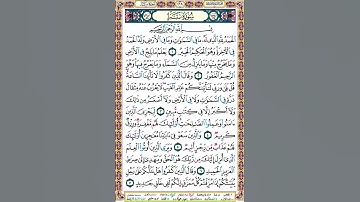 سُورَةُ سَبَإٍ
بِسْمِ اللَّهِ الرَّحْمَٰنِ الرَّحِيمِ
الْحَمْدُ لِلَّهِ الَّذِي لَهُ مَا فِي السَّمَٰوَٰتِ وَمَا فِي الْأَرْضِ وَلَهُ الْحَمْدُ
فِي الْءَاخِرَةِ وَهُوَ الْحَكِيمُ الْخَبِيرُ ١ يَعْلَمُ مَا يَلِجُ فِي الْأَرْضِ
وَمَا يَخْرُجُ مِنْهَا وَمَا يَنزِلُ مِنَ السَّمَاءِ وَمَا يَعْرُجُ فِيهَا وَهُوَ
الرَّحِيمُ الْغَفُورُ ٢ وَقَالَ الَّذِينَ كَفَرُوا لَا تَأْتِينَا السَّاعَةُ
قُلْ بَلَىٰ وَرَبِّي لَتَأْتِيَنَّكُمْ عَٰلِمِ الْغَيْبِ لَا يَعْزُبُ عَنْهُ مِثْقَالُ
ذَرَّةٍ فِي السَّمَٰوَٰتِ وَلَا فِي الْأَرْضِ وَلَا أَصْغَرُ مِن ذَٰلِكَ
وَلَا أَكْبَرُ إِلَّا فِي كِتَٰبٍ مُّبِينٍ ٣ لِّيَجْزِيَ الَّذِينَ
ءَامَنُوا وَعَمِلُوا الصَّٰلِحَٰتِ أُولَٰئِكَ لَهُم مَّغْفِرَةٌ وَرِزْقٌ
كَرِيمٌ ٤ وَالَّذِينَ سَعَوْ فِي ءَايَٰتِنَا مُعَٰجِزِينَ أُولَٰئِكَ
لَهُمْ عَذَابٌ مِّن رِّجْزٍ أَلِيمٌ ٥ وَيَرَى الَّذِينَ أُوتُوا الْعِلْمَ
الَّذِي أُنزِلَ إِلَيْكَ مِن رَّبِّكَ هُوَ الْحَقَّ وَيَهْدِي إِلَىٰ صِرَٰطِ
الْعَزِيزِ الْحَمِيدِ ٦ وَقَالَ الَّذِينَ كَفَرُوا هَلْ نَدُلُّكُمْ عَلَىٰ رَجُلٍ
يُنَبِّئُكُمْ إِذَا مُزِّقْتُمْ كُلَّ مُمَزَّقٍ إِنَّكُمْ لَفِي خَلْقٍ جَدِيدٍ ٧